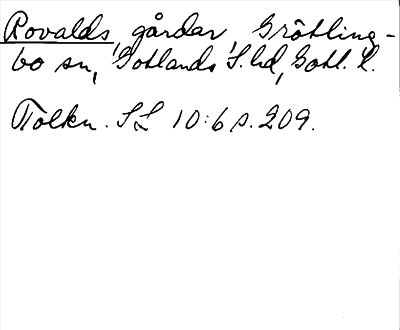 Rovalds, gårdar, Grötling-
bo sn, Gotlands S. hd, Gotl. l.
Tolkn. SL 10:6 s. 209.